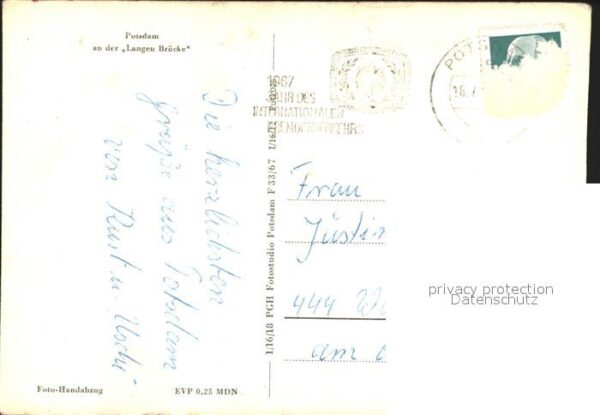 Potsdam
an der „Langen Brücke"
Die herzlichsten
Grüße aus Potsdam
von Kurt u. Uschi
Foto-Handabzug
EVP 0,25 MDN
I/16/18 PGH Fotostudio Potsdam F 33/67 I/16/12
1967
JAHR DES
INTERNATIONALEN
POTS
18.7
Frau
Justin
444
am
privacy protection
Datenschutz